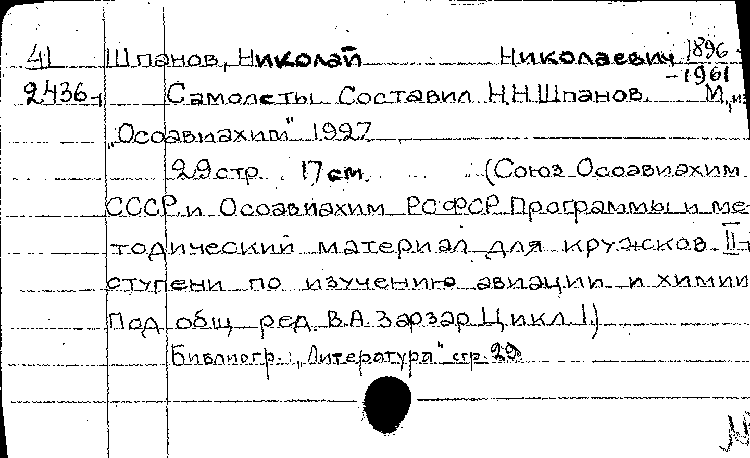 41 Шпанов, Николай Николаевич 1896-
2436-1 Самолеты. Составил Н.Н.Шпанов. -1961 М., из
„Осоавиахим" 1927
29 стр. 17 см. (Союз Осоавиахим
СССР и Осоавиахим РСФСР. Программы и ме-
тодический материал для кружков II-
ступени по изучению авиации и химии
Под общ ред. В.А.Зарзар. Цикл I.)
Библиогр.: „Литература" стр. 29
№